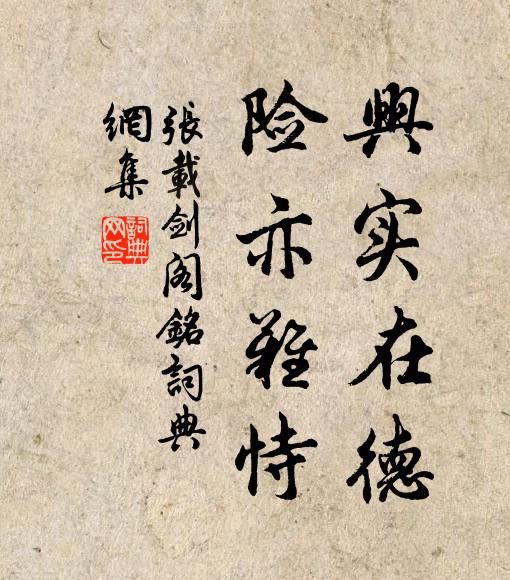 興实在德
险亦難恃
張載剑阁銘詞典
網集
詞典
网印